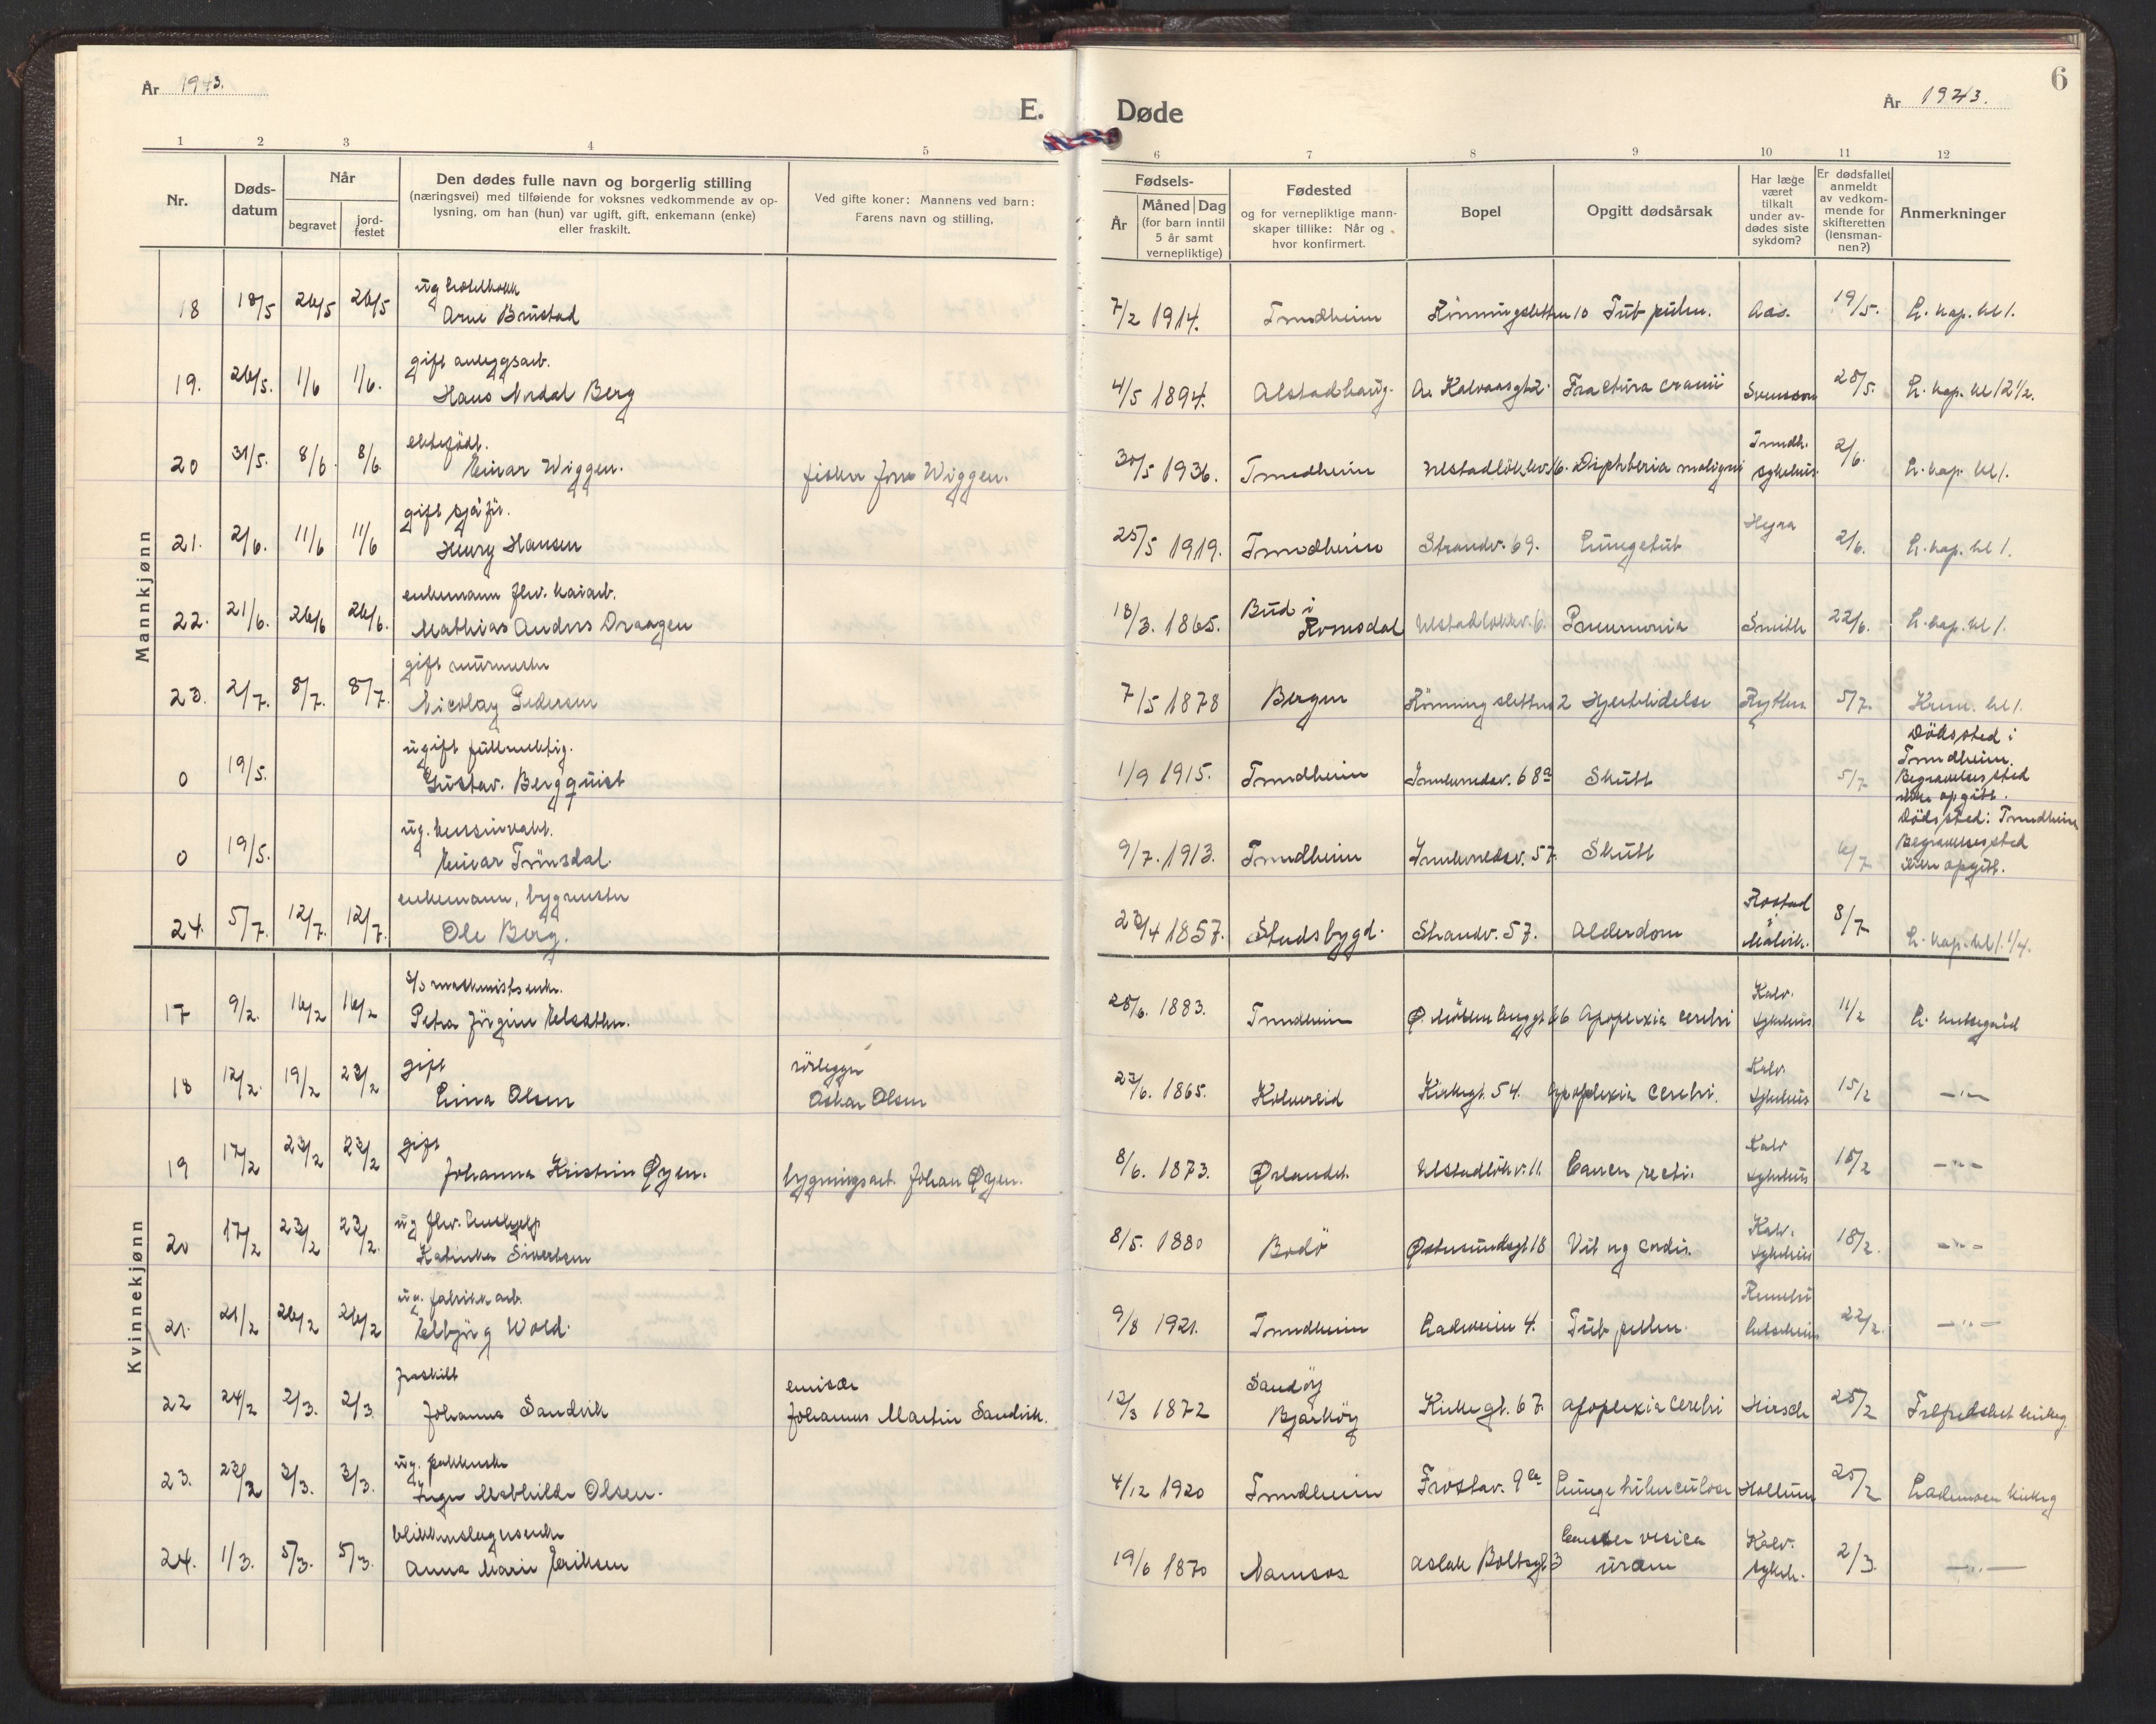 År 1943.
E. Døde
År 1943.
6
1 2 3 4 5 6 7 8 9 10 11 12
Nr.
Døds-
datum
Når
begravet
jord-
festet
Den dødes fulle navn og borgerlig stilling
(næringsvei) med tilføiende for voksnes vedkommende av op-
lysning, om han (hun) var ugift, gift, enkemann (enke)
eller fraskilt.
Ved gifte koner: Mannens ved barn:
Farens navn og stilling,
Fødsels-
År
Måned Dag
(for barn inntil
5 år samt
vernepliktige)
Fødested
og for vernepliktige mann-
skaper tillike: Når og
hvor konfirmert.
Bopel
Opgitt dødsårsak
Har læge
været
tilkalt
under av-
dødes siste
sykdom?
Er dødsfallet
anmeldt
av vedkom-
mende for
skifteretten
(lensman-
nen?)
Anmerkninger
Mannkjønn
ug
18 18/5 26/5 26/5 Arne Brustad 7/2 1914. Trondheim Rönningsletten 10 Tub pulm. Aas. 19/5. L. kap. kl 1.
gift anleggsarb.
19. 26/5. 1/6 1/6. Hans Nordal Berg 4/5 1894. Alstadhaug. A. Kalvaasgt 2. Fractura cranii Svensson 28/5. L. kap. kl 12 1/2.
ektefödt.
20 31/5. 8/6. 8/6 Einar Wiggen. fisker Jens Wiggen. 30/5 1936. Trondheim Ulstadlökkv. 16. Diphteria maligni Trondh. sykehus. 2/6. L. kap. kl 1.
gift sjåför.
21. 2/6. 11/6 11/6 Henry Hansen 25/5 1919. Trondheim Strandv. 69. Lungetub Hegra 2/6. L. kap. kl 1.
enkemann fhv. kaiarb.
22. 21/6. 26/6 26/6. Mathias Anders Draagen 18/3. 1865. Bud i Romsdal Ulstadlökkv. 6. Pneumonia Smith 22/6. L. kap. kl 1.
gift murmester
23. 2/7. 8/7. 8/7. Nicolay Pedersen 7/5 1878 Bergen Rönningsletten 2 Hjertelidelse Rytter 5/7. Krem. kl 1.
ugift fullmektig.
0 19/5. Gustav. Bergquist 1/9 1915. Trondheim Innherredsv. 68a Skutt 5/7 Dödssted i Trondheim. Begravelsessted ikke opgitt.
ug.
0 19/5. Einar Trönsdal. 9/7. 1913. Trondheim Innherredsv. 57. Skutt 6/7 Dödssted: Trondheim Begravelsessted ikke opgitt.
enkemann, bygmester
24. 5/7. 12/7. 12/7. Ole Berg. 23/4 1857. Stadsbygd. Strandv. 57. Alderdom Rostad i Malvik. 8/7 L. kap. kl 1. 1/4.
Kvinnekjønn
maskinistenke.
17 9/2. 16/2 16/2 Petra Jörgine 28/6. 1883. Trondheim Apoplexia cerebri Kalv. sykehus 11/2 L.
gift rörlegger
18 12/2. 19/2 23/2 Lina Olsen Oskar Olsen 23/6. 1865. Kolvereid Kirkegt. 54. Apoplexia cerebri. Kalv. sykehus 15/2 —"—
gift
19 17/2 23/2 23/2 Johanna Kristine Øyen. bygningsarb. Johan Øyen. 8/6. 1873. Ørlandet. Ulstadlökv. 11. Cancer recti. Kalv sykehus 18/2 —"—
ug fhv. hushjelp
20 17/2 23/2 23/2. Katinka Sivertsen 8/5. 1880 Bodö Østersundsgt 18 Vit og cordis. Kalv. sykehus 18/2. —"—
ug. fabrikkarb.
21. 21/2 26/2 26/2 Elbjörg Wold. 9/8 1921. Trondheim Ladeveien 4. Tub pulm. 22/2. —"—
fraskilt emisær
22 24/2 2/3. 2/3. Johanna Sandvik Johannes Martin Sandvik. 12/3 1872 Sandöy Bjarköy Kirkegt. 67. Apoplexia cerebri Hirsch 25/2 Tilfredshet kirkeg.
ug. pakkerske
23. 23/2 3/3. 3/3. Inger Mathilde Olsen. 4/12 1920 Trondheim Frostav. 9 Lungetuberculose Hollum 25/2 Lademoen kirkeg
blikkenslagerenke
24. 1/3. 5/3. 5/3. Anna Marie Eriksen 19/6 1870 Namsos Aslak Boltsgt. 3 Cancer vesica Kalv. sykeh. 2/3. —"—